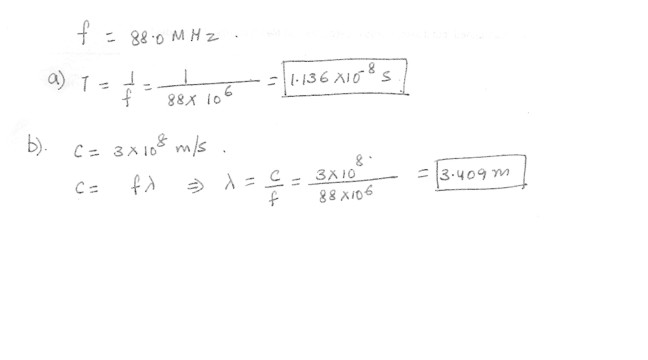 f = 88.0 MHz.
a) T = 1/f = 1/(88 × 10^6) = 1.136 × 10^-8 s
b). C = 3 × 10^8 m/s.
C = fλ ⇒ λ = C/f = 3 × 10^8/(88 × 10^6) = 3.409 m